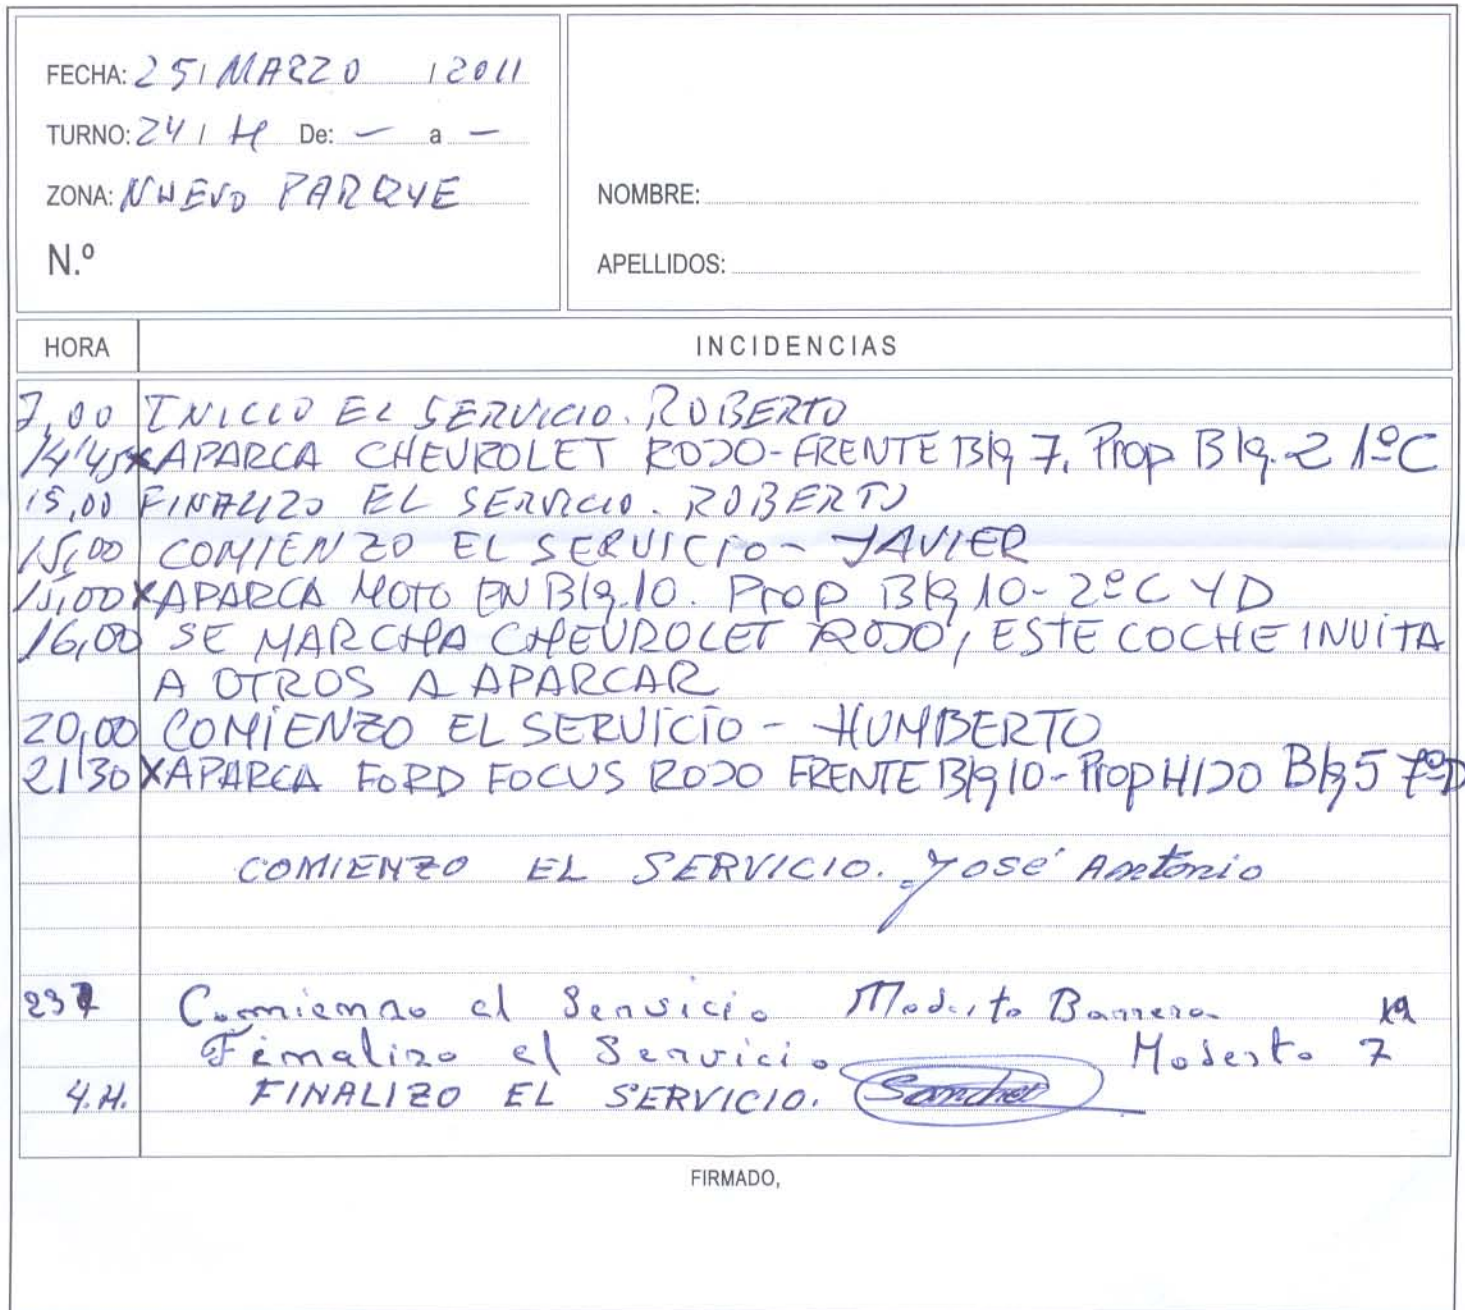 FECHA: 25 / MARZO / 2011
TURNO: 24 / H De: — a —
ZONA: NUEVO PARQUE
N.º
NOMBRE:
APELLIDOS:
HORA INCIDENCIAS
7,00 INICIO EL SERVICIO. ROBERTO
14'45 x APARCA CHEVROLET ROJO-FRENTE Blq 7. Prop Blq. 2 1º C
15,00 FINALIZO EL SERVICIO. ROBERTO
15,00 COMIENZO EL SERVICIO - JAVIER
15,00 X APARCA MOTO EN Blq.10. Prop Blq 10-2º C Y D
16,00 SE MARCHA CHEVROLET ROJO, ESTE COCHE INVITA
A OTROS A APARCAR
20,00 COMIENZO EL SERVICIO - HUMBERTO
21'30 X APARCA FORD FOCUS ROJO FRENTE Blq 10-Prop HIJO Blq 5 7º D
COMIENZO EL SERVICIO. José Antonio
Comienzo el Servicio Modesto Barrera
Finalizo el Servicio Modesto 7
4.H. FINALIZO EL SERVICIO. Sanchez
FIRMADO,